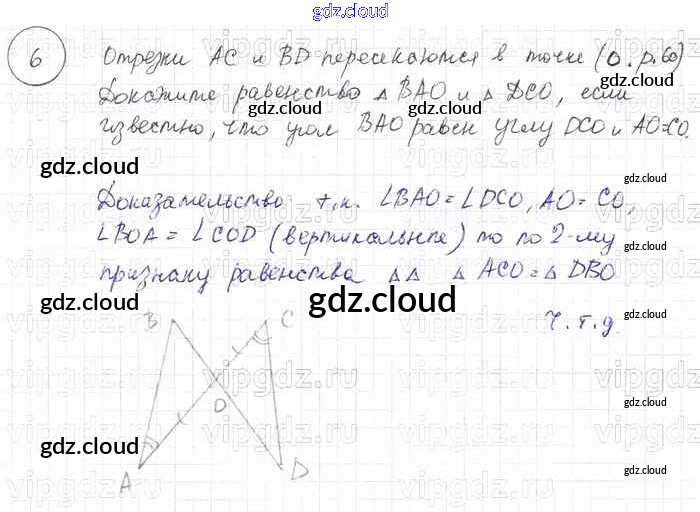 gdz.cloud
6
Отрезки AC и BD пересекаются в точке (О. р.60)
Докажите равенство △ BAO и △ DCO, если
известно, что угол BAO равен углу DCO и AO=CO.
Доказательство т.к. ∠BAO = ∠DCO, AO = CO,
∠BOA = ∠COD (вертикальные) то по 2-му
признаку равенства △△ △ ACO = △ DBO
ч.т.д.
B C
O
A D
gdz.cloud
gdz.cloud
gdz.cloud
gdz.cloud
gdz.cloud
gdz.cloud
gdz.cloud
gdz.cloud
gdz.cloud
gdz.cloud
gdz.cloud
gdz.cloud
gdz.cloud
vipgdz.ru
vipgdz.ru
vipgdz.ru